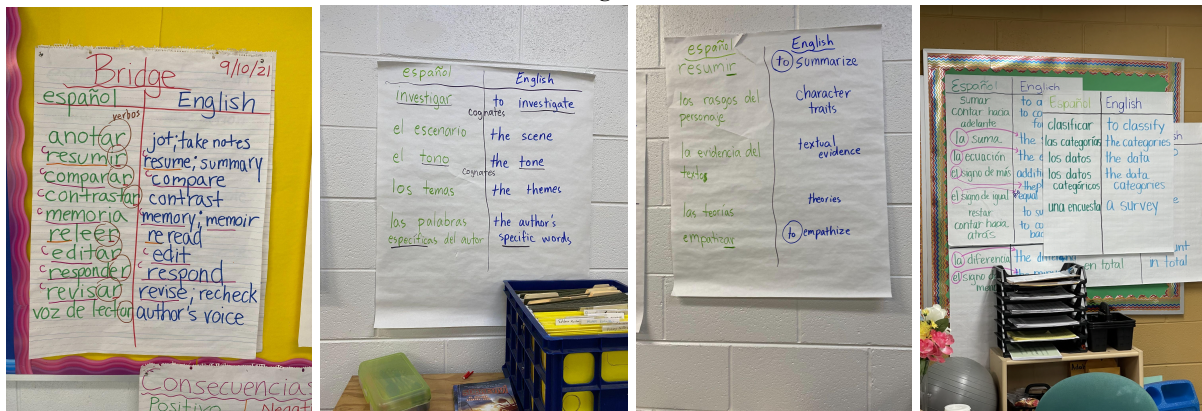 Bridge 9/10/21
español English
verbos
anotar jot; take notes
c resumir resume; summary
c comparar compare
c contrastar contrast
c memoria memory; memoir
releer reread
c editar edit
c responder respond
c revisar revise; recheck
voz de lector author's voice
Consecuencias
español English
investigar to investigate
cognates
el escenario the scene
el tono the tone
cognates
los temas the themes
las palabras the author's
específicas del autor specific words
español English
resumir to summarize
los rasgos del Character
personaje traits
la evidencia del textual
texto evidence
las teorías theories
empatizar to empathize
Español English
sumar
contar hacia
adelante
la suma the
la ecuación the
el signo de más
el signo de igual equal
restar
contar hacia
atrás
la diferencia the
el signo
Español English
clasificar to classify
las categorías the categories
los datos the data
los datos the data
categóricos categories
una encuesta a survey
en total in total